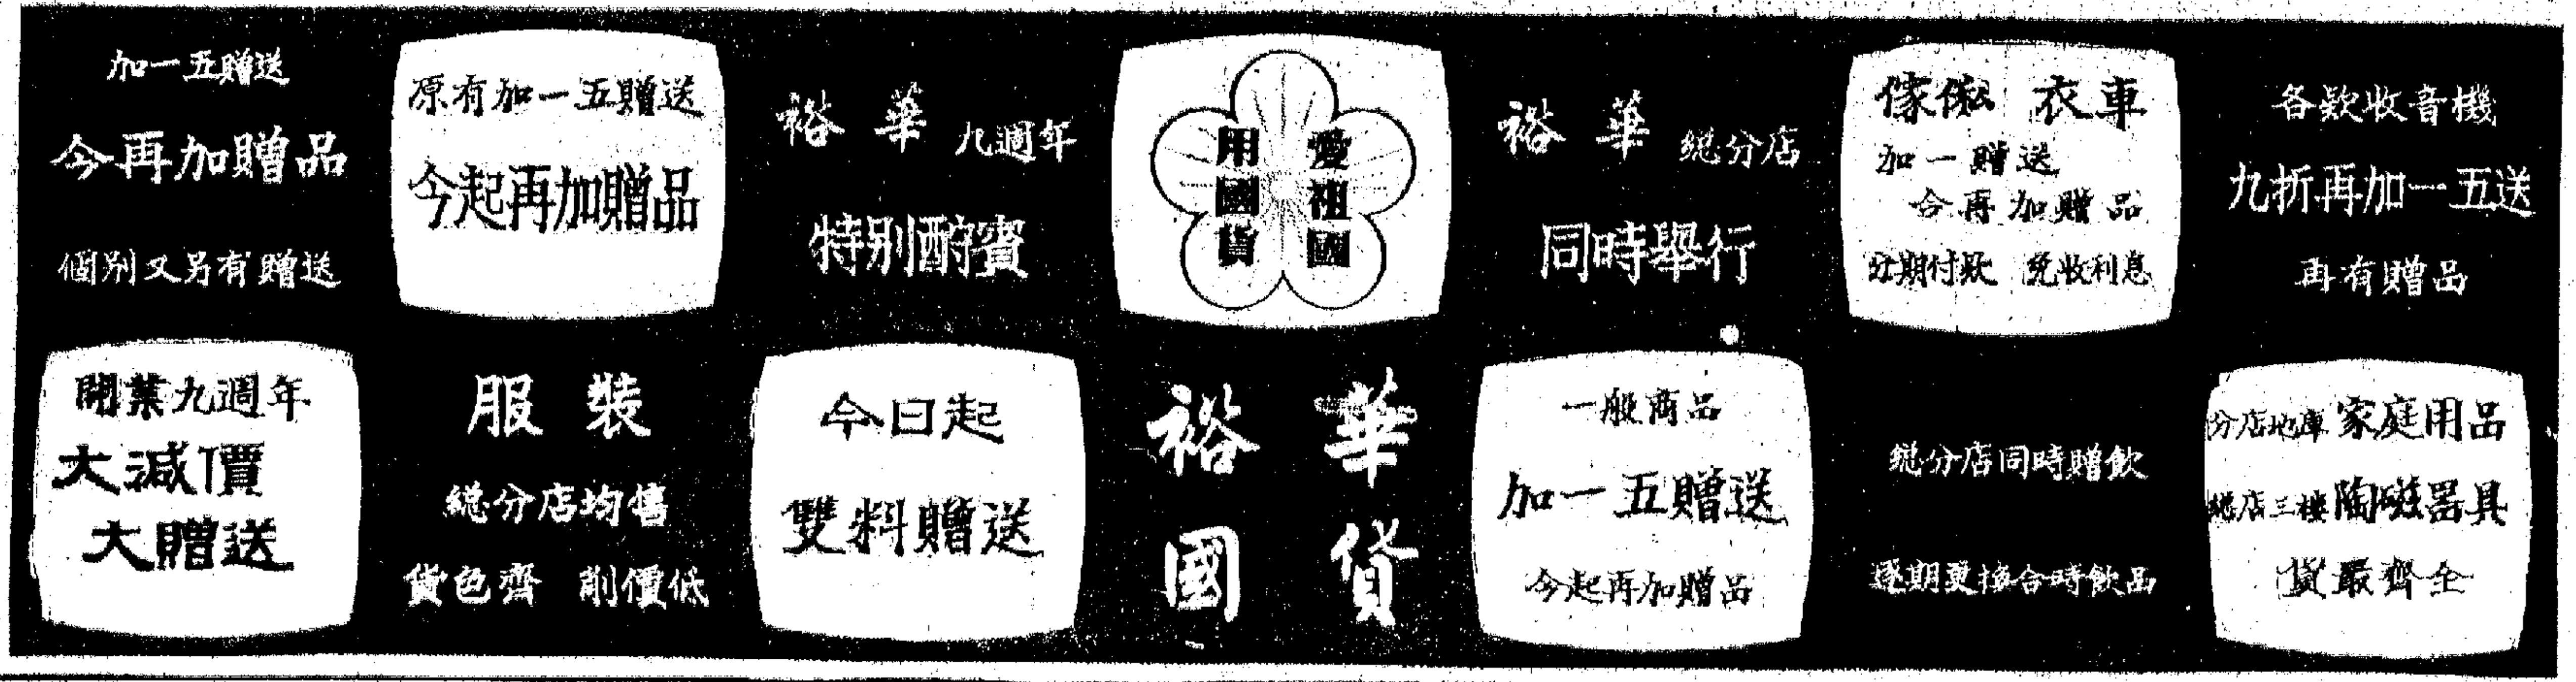 加一五贈送
今再加贈品
個别又另有贈送
原有加一五贈送
今起再加贈品
裕華九週年
特别酧賓
愛祖國
用國貨
裕華總分店
同時舉行
傢俬 衣車
加一贈送
今再加贈品
分期付欵 免收利息
各欵收音機
九折再加一五送
再有贈品
開業九週年
大減價
大贈送
服裝
總分店均售
貨色齊 削價低
今日起
雙料贈送
裕華
國貨
一般商品
加一五贈送
今起再加贈品
總分店同時贈飲
逐期更換合時飲品
分店地庫家庭用品
總店三樓陶磁器具
貨最齊全